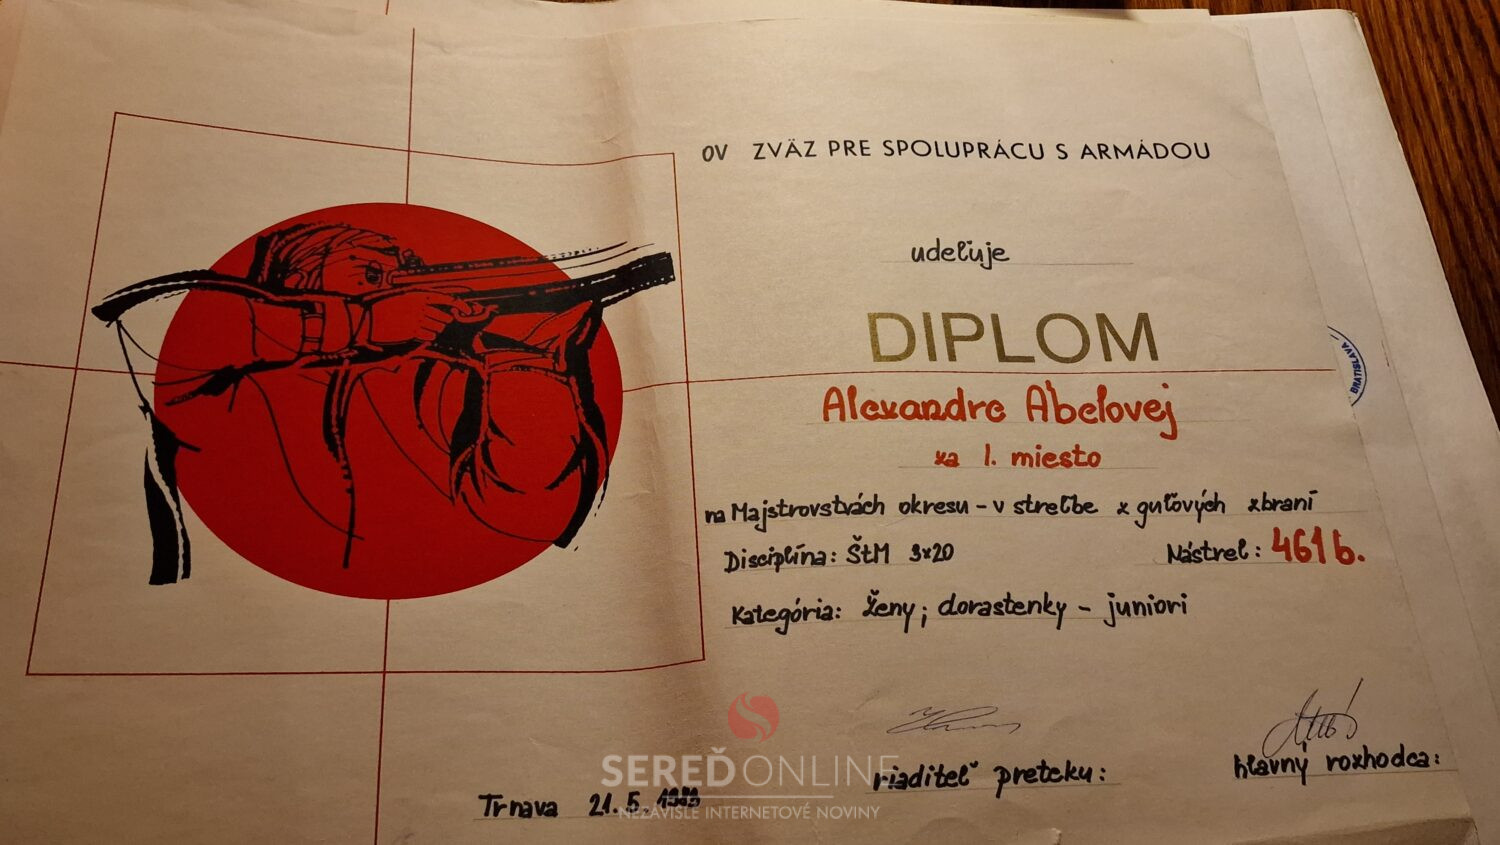 OV ZVÄZ PRE SPOLUPRÁCU S ARMÁDOU
udeľuje
DIPLOM
BRATISLAVA
Alexandre Ábelovej
za 1. miesto
na Majstrovstvách okresu - v streľbe z guľových zbraní
Disciplína: ŠtM 3x20 Nástrel: 461 b.
Kategória: ženy; dorastenky - juniori
SEREĎ ONLINE
NEZÁVISLÉ INTERNETOVÉ NOVINY
riaditeľ preteku:
hlavný rozhodca:
Trnava 21. 5.